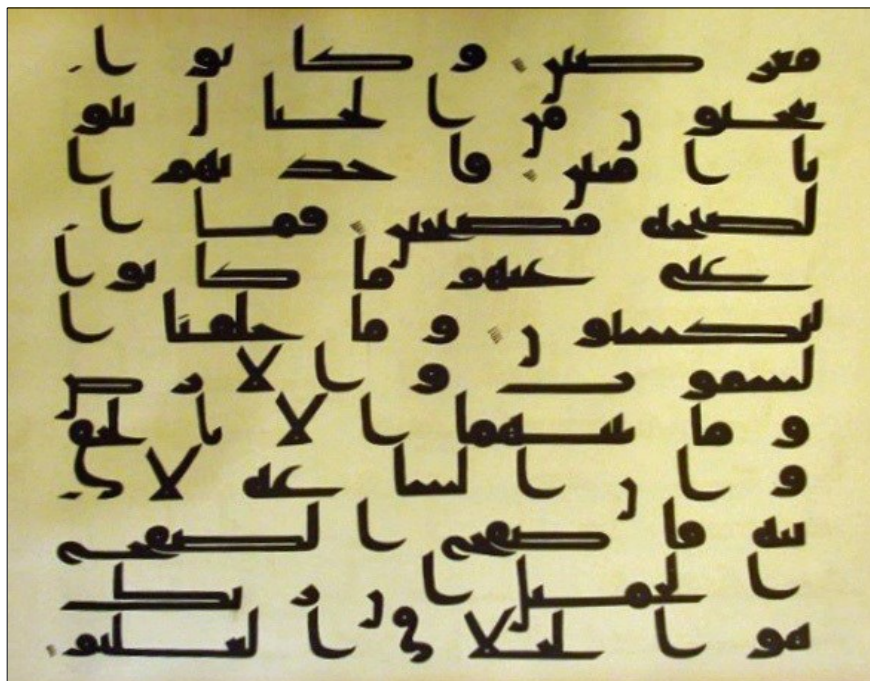 معرضين وكانوا ي
نحتون من الجبال بيو
تا امنين فاخذتهم ا
لصيحة مصبحين فما ا
غنى عنهم ما كانوا
يكسبون وما خلقنا ا
لسموت والارض
وما بينهما الا بالحق
وان الساعة لا ت
ية فاصفح الصفح
الجميل ان ربك
هو الخلاق العليم